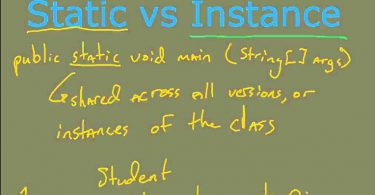 Static vs Instance
public static void main (String[] args)
shared across all versions, or
instances of the class
Student